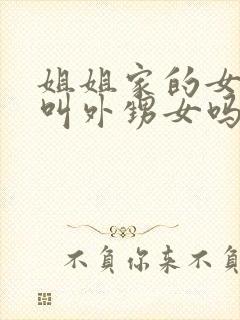 姐姐家的女
叫外甥女吗
不负你来不负